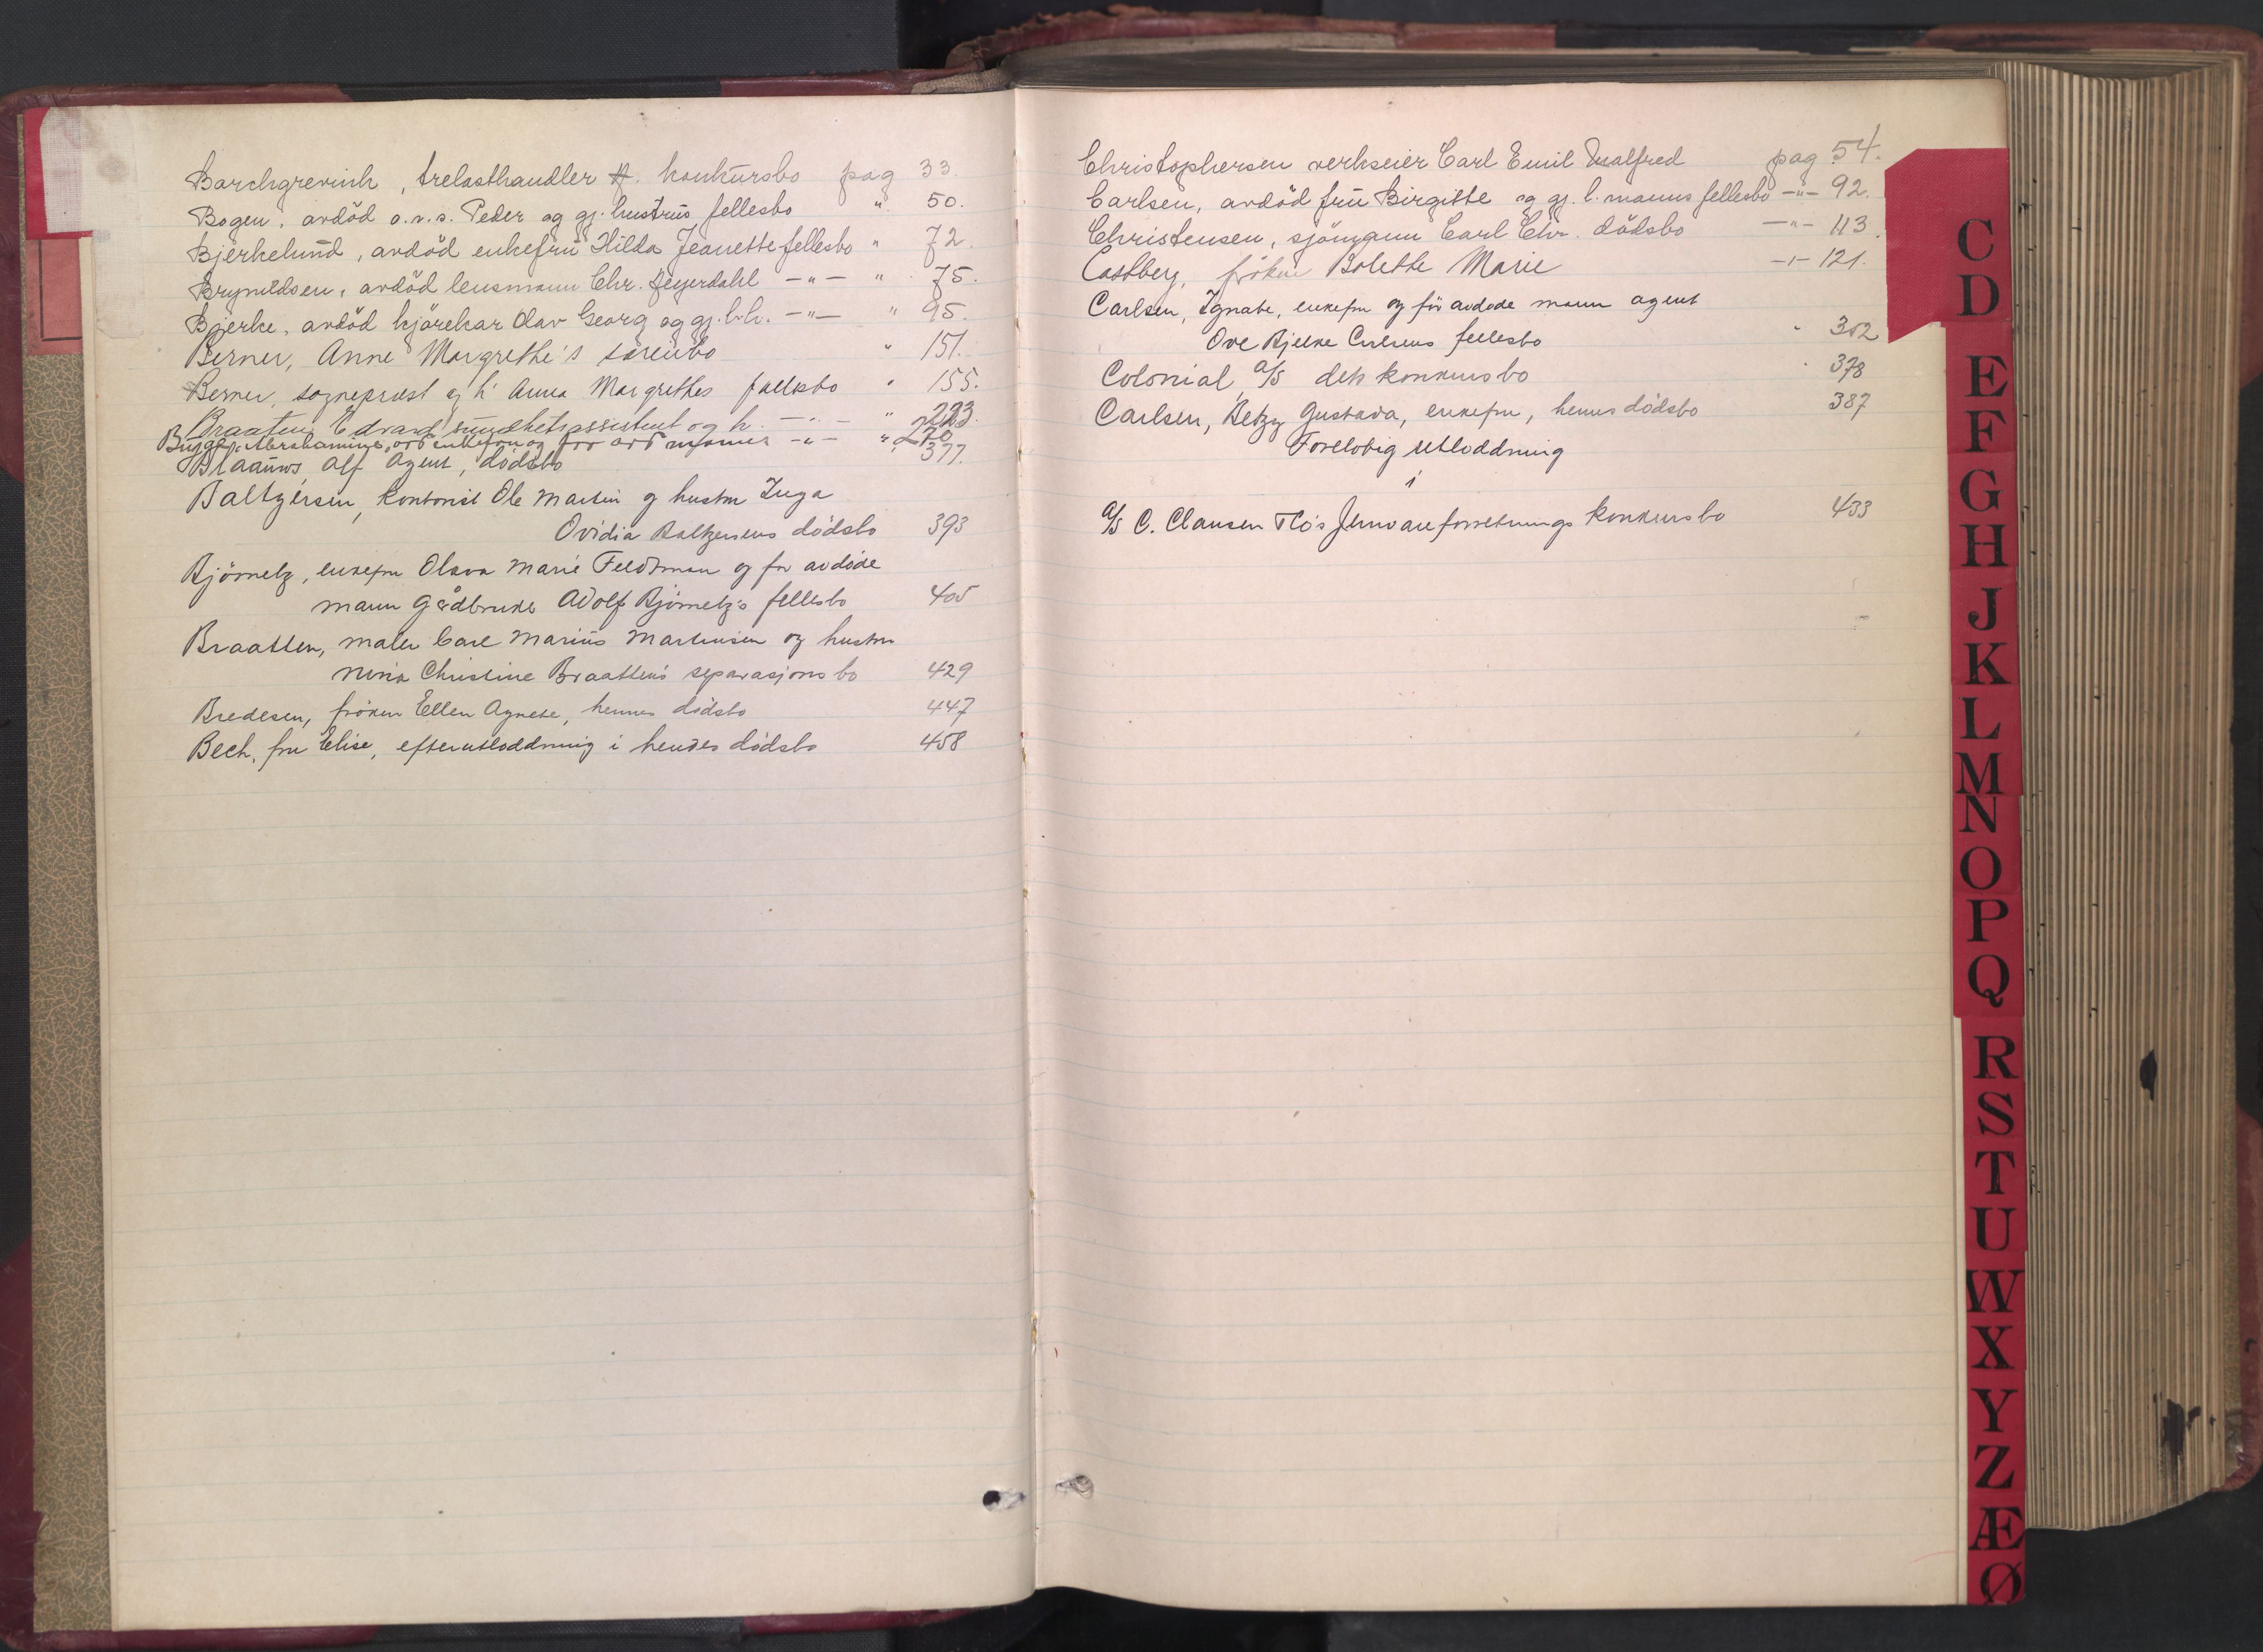 Barchgrevink, trelasthandler A. konkursbo pag 33.
Bogen, avdöd o.r.s. Peder og gj. hustrus fellesbo " 50.
Bjerkelund, avdöd enkefru Hilda Jeanette fellesbo " 72.
Brynildsen, avdöd lensmann Chr. Heyerdahl -"- " 75.
Bjerke, avdöd kjörekar Olav Georg og gj.l.h. -"- " 95.
Berner, Anne Margrethe's særeiebo " 151.
Berner, sogneprest og h' Anna Margrethes fællesbo " 155.
Braaten, Edvard sundhetsassistent og h. -"- " 223.
Bugge, avd enkefru og for avd manns -"- " 270
Blaauws Alf Agent, dödsbo " 377.
Baltzersen, kontorist Ole Martin og hustru Inga
Ovidia Baltzersens dödsbo 393
Björnetz, enkefru Olava Marie Feldtman og for avdöde
mann gårdbruker Adolf Björnetz's fellesbo 405
Braatten, maler Carl Marius Martinsen og hustru
Nina Christine Braatten's separasjonsbo 429
Bredesen, fröken Ellen Agnete, hennes dödsbo 447
Bech, fru Elise, efterutloddning i hendes dödsbo 458
Christophersen verkseier Carl Emil Walfred pag 54.
Carlsen, avdöd fru Birgitte og gj. l. manns fellesbo -"- 92.
Christensen, sjömann Carl Chr. dödsbo -"- 113.
Castberg, fröken Bolette Marie -"- 121.
Carlsen, Ignate, enkefru og for avdöde mann agent
Ove Bjelke Carlsens fellesbo " 302
Colonial, A/S dets konkursbo " 378
Carlsen, Betzy Gustava, enkefru, hennes dödsbo 387
Forelöbig utloddning
i
A/S C. Clausen & Co's Jernvareforretnings konkursbo 433
C
D
E
F
G
H
J
K
L
M
N
O
P
Q
R
S
T
U
W
X
Y
Z
Æ
Ø